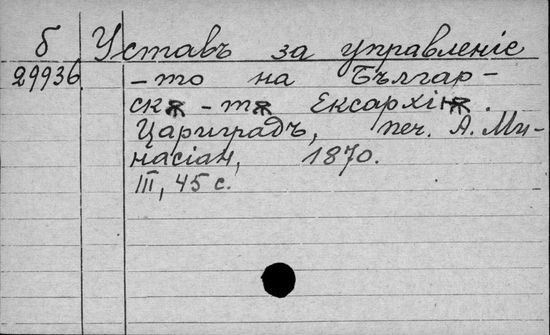 б Уставъ за управленіе
29936 -то на Българ-
скѫ-тѫ Ексархіѭ.
Цариградъ, печ. А. Ми-
насіан, 1870.
III, 45 с.